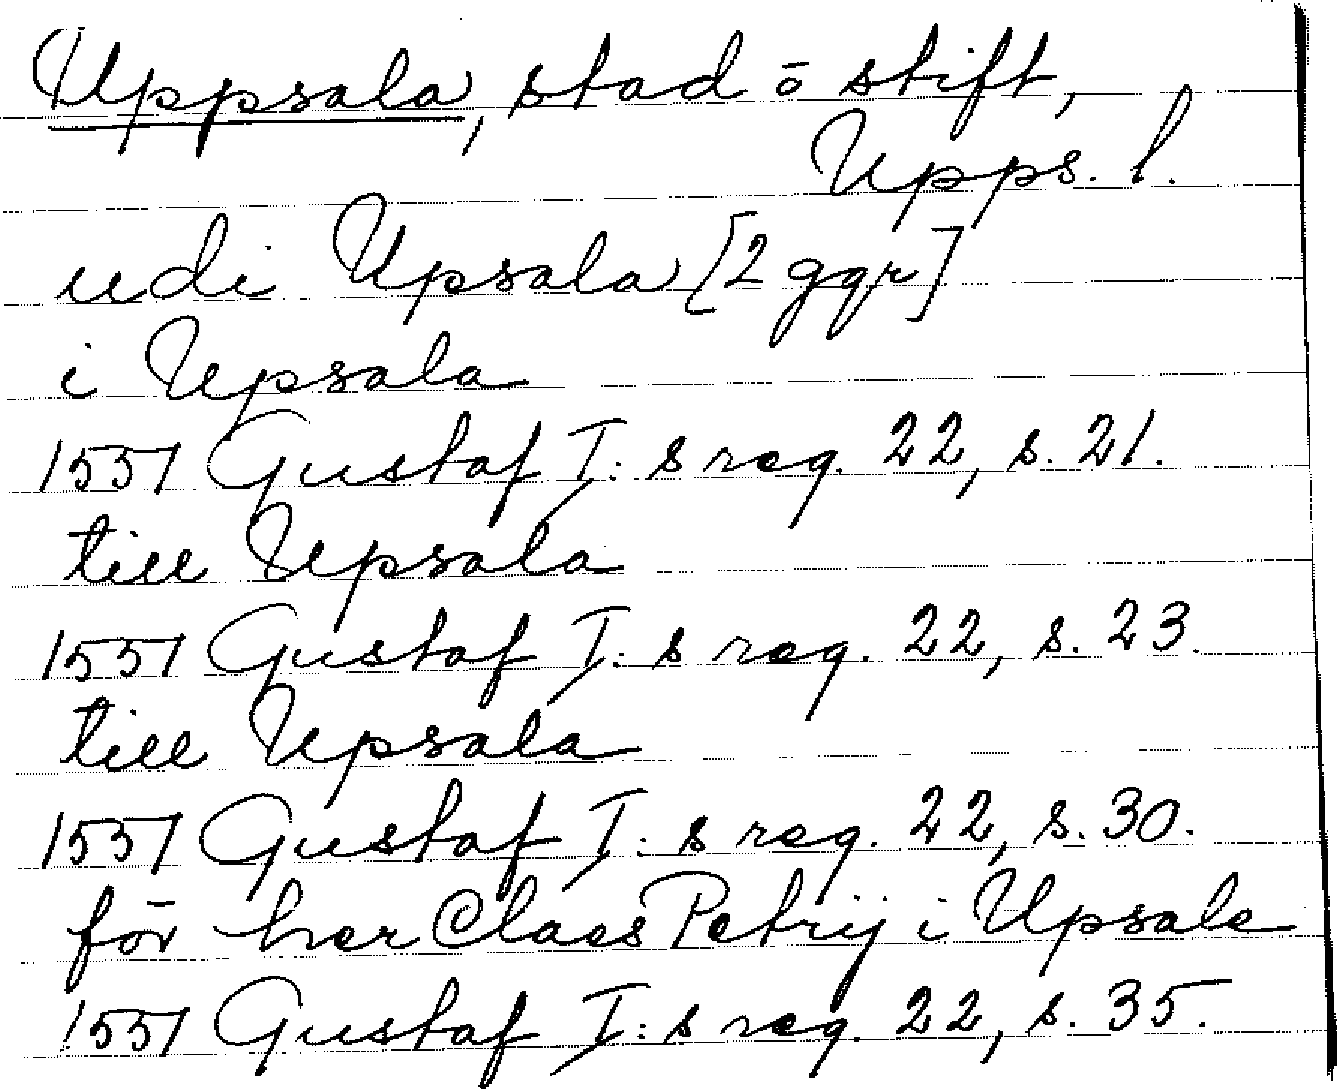 Uppsala, stad o stift,
Upps. l.
udi Upsala [2 ggr]
i Upsala
1551 Gustaf I:s reg. 22, s. 21.
till Upsala
1551 Gustaf I:s reg. 22, s. 23.
till Upsala
1551 Gustaf I:s reg. 22, s. 30.
för her Claes Petrij i Upsale
1551 Gustaf I:s reg. 22, s. 35.